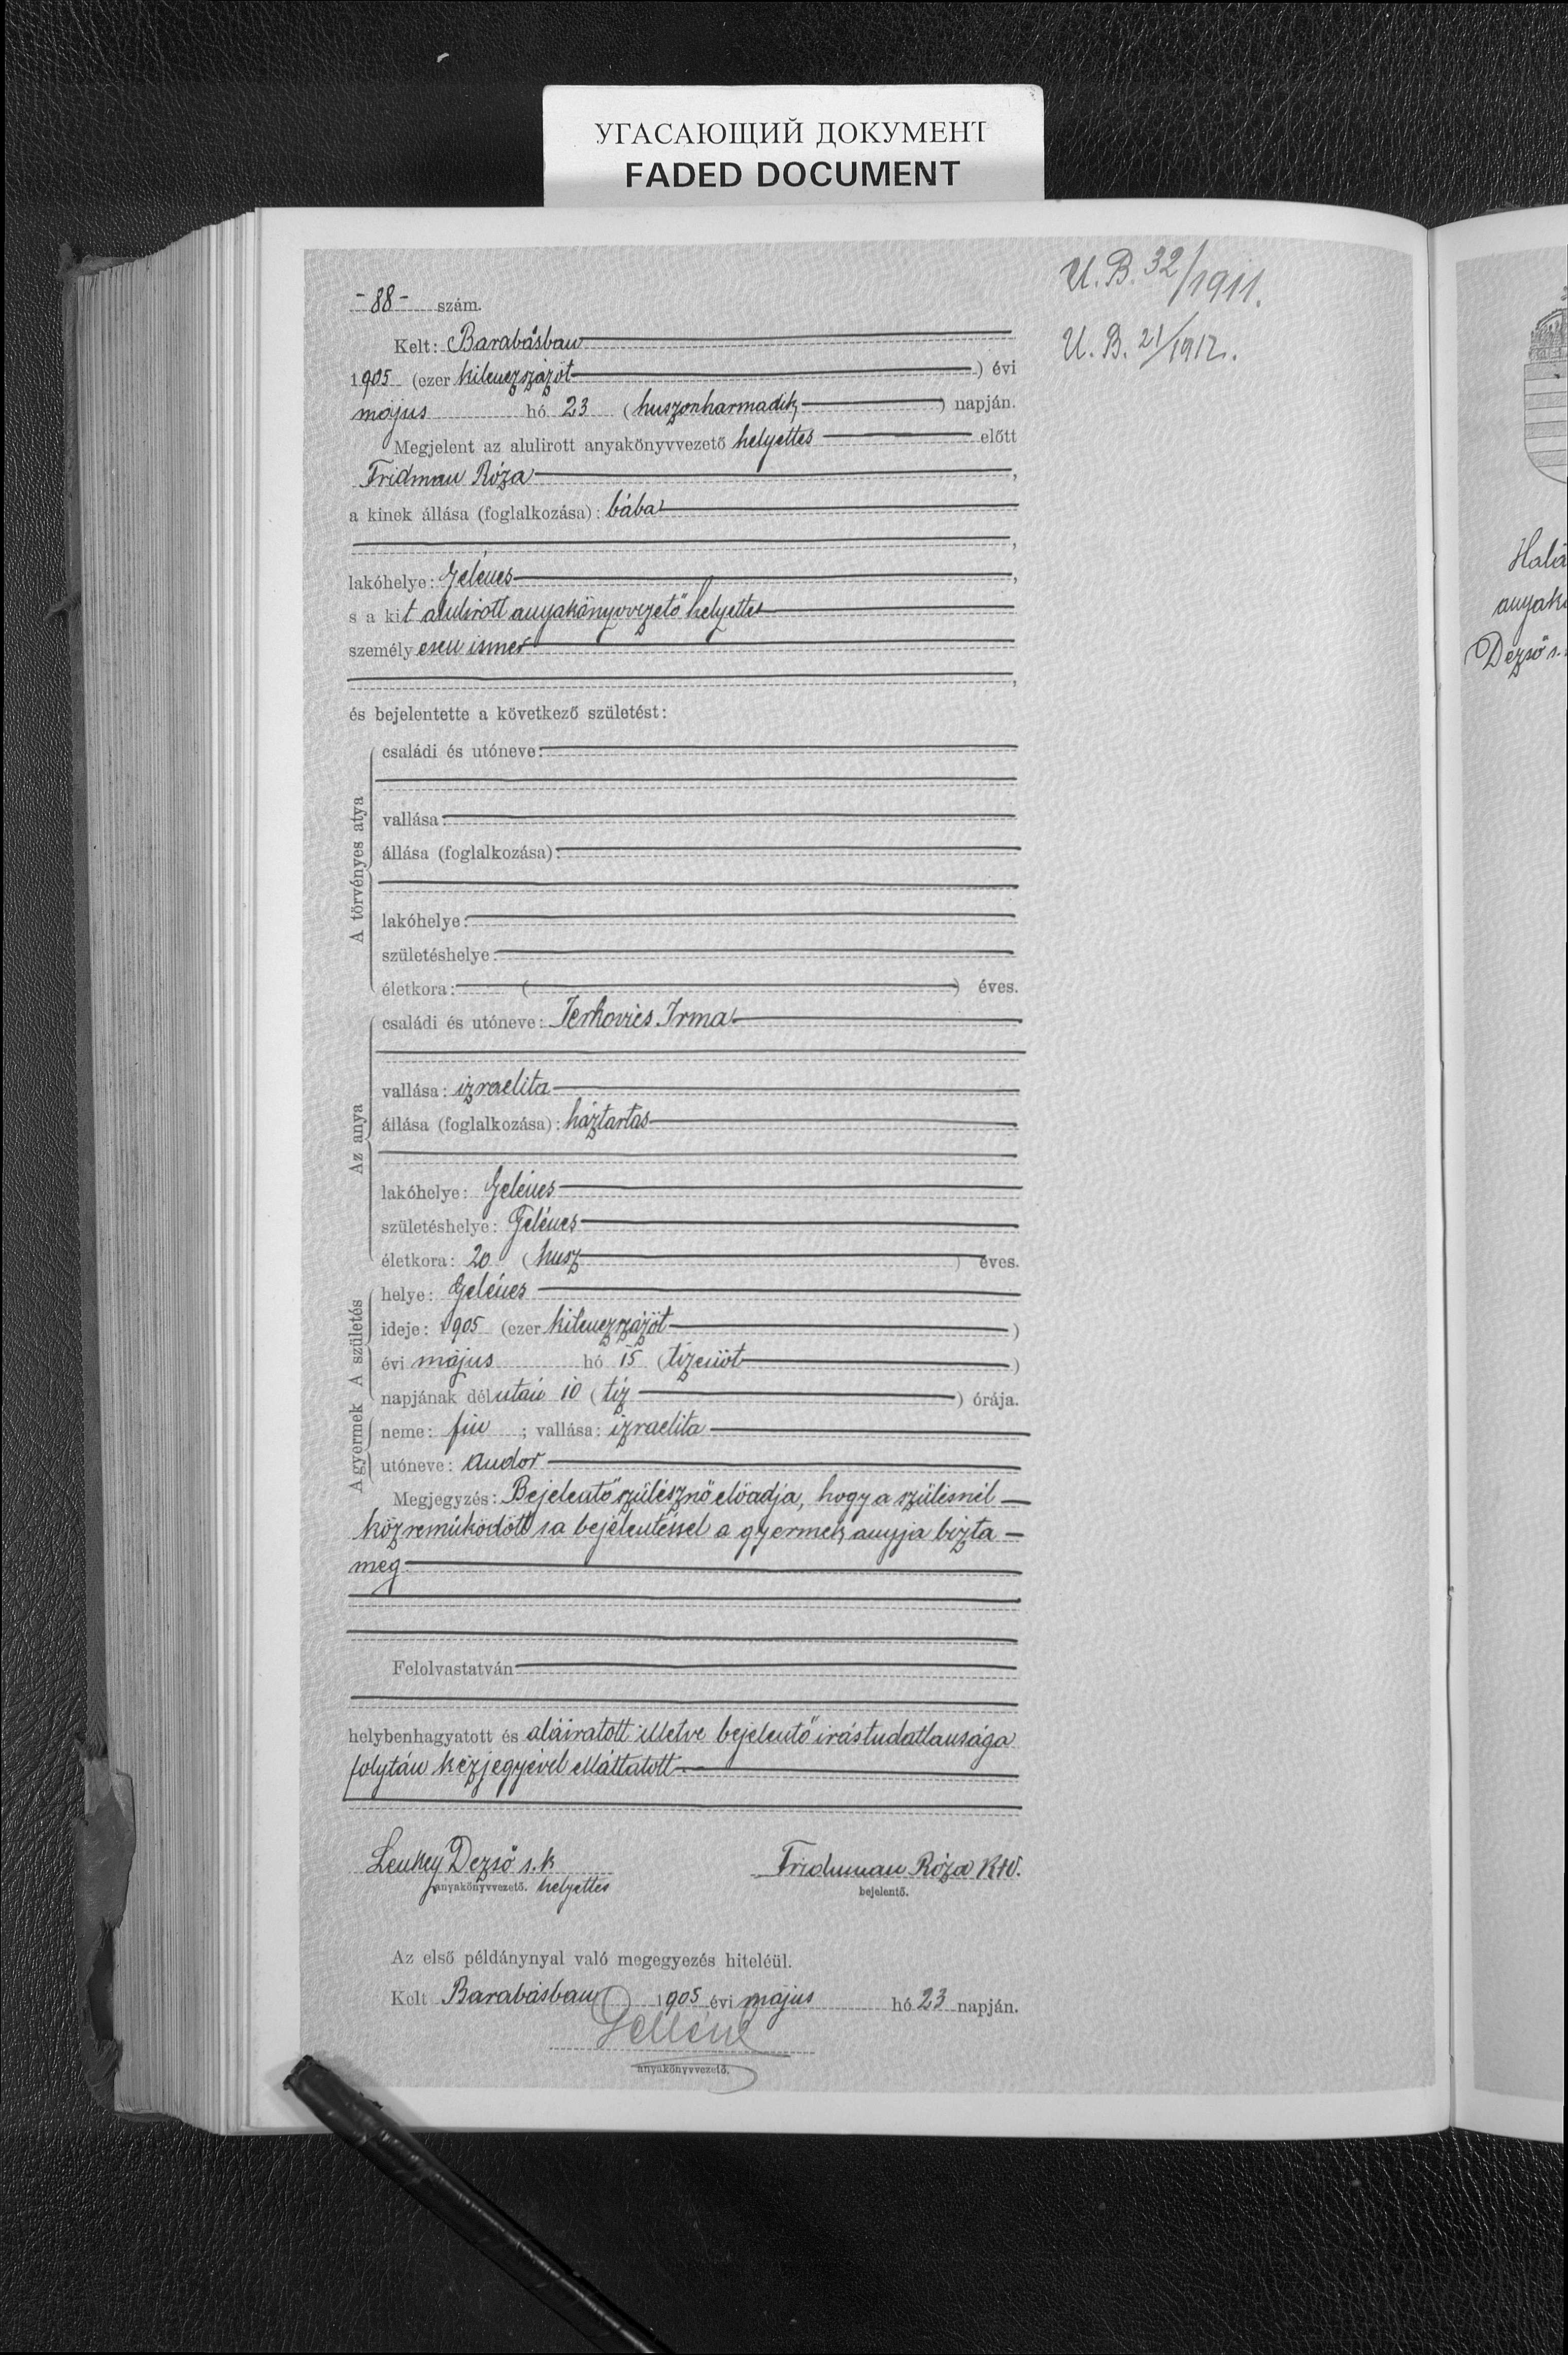 УГАСАЮЩИЙ ДОКУМЕНТ
FADED DOCUMENT
U. B. 32/1911.
U. B. 21/1912.
-88- szám.
Kelt: Barabásban
1905 (ezer kilenczszázöt ) évi
május hó 23 (huszonharmadik ) napján.
Megjelent az alulirott anyakönyvvezető helyettes előtt
Fridman Róza ,
a kinek állása (foglalkozása): bába
,
lakóhelye: Gelénes ,
s a kit alulirott anyakönyvvezető helyettes
személyesen ismer
,
és bejelentette a következő születést:
A törvényes atya
családi és utóneve:
vallása:
állása (foglalkozása):
lakóhelye:
születéshelye:
életkora: ( ) éves.
Az anya
családi és utóneve: Jerkovics Irma
vallása: izraelita
állása (foglalkozása): háztartás
lakóhelye: Gelénes
születéshelye: Gelénes
életkora: 20 (husz ) éves.
A születés
helye: Gelénes
ideje: 1905 (ezer kilenczszázöt )
évi május hó 15 (tizenöt )
napjának délután 10 (tiz ) órája.
A gyermek
neme: fiu ; vallása: izraelita
utóneve: Andor
Megjegyzés: Bejelentő szülésznő előadja, hogy a szülésnél
közreműködött s a bejelentéssel a gyermek anyja bizta
meg
Felolvastatván
helybenhagyatott és aláiratott illetve bejelentő irástudatlansága
folytán kézjegyével elláttatott
Lenkey Dezső s. k Fridman Róza
anyakönyvvezető. helyettes bejelentő.
Az első példánynyal való megegyezés hiteléül.
Kelt Barabásban 1905 évi május hó 23 napján.
anyakönyvvezető.
anyak
Dezső s.